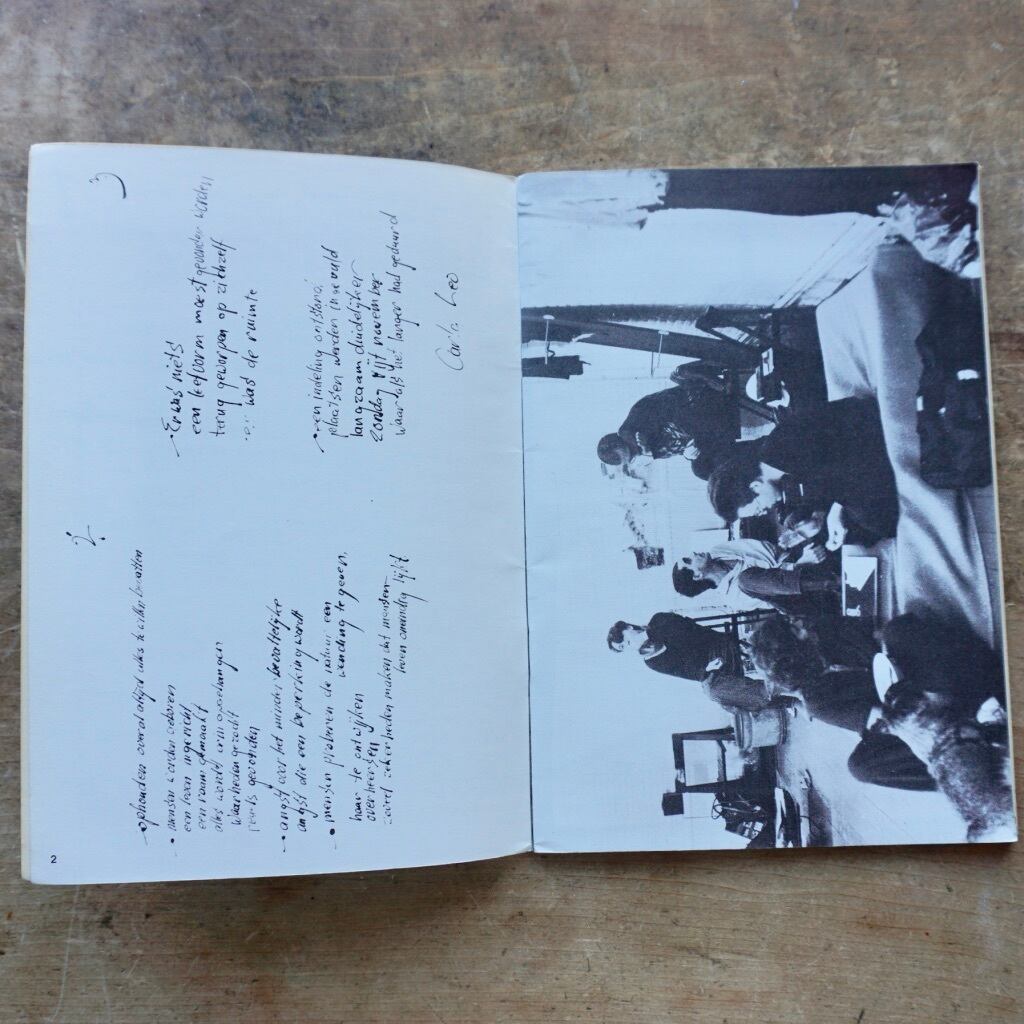 2.
ophouden overal altijd alles te willen bevatten
• mensen worden geboren
een leven ingericht
een raam gemaakt
alles wordt erin opgehangen
waarheden gezocht
gevonden
• angst voor het minder bevattelijke
angst die een beperking wordt
• mensen proberen de natuur een
wending te geven,
haar te ontwijken
overheersen
zoveel zekerheden maken dat mensen-
leven lijkt
3
Er was niets
een leefvorm moest gevonden worden
terug geworpen op zichzelf
was de ruimte
• een indeling ontstond,
plaatsen werden ingevuld
langzaam duidelijker
zondag vijf november
waar als het langer had geduurd
Carla Leo
2